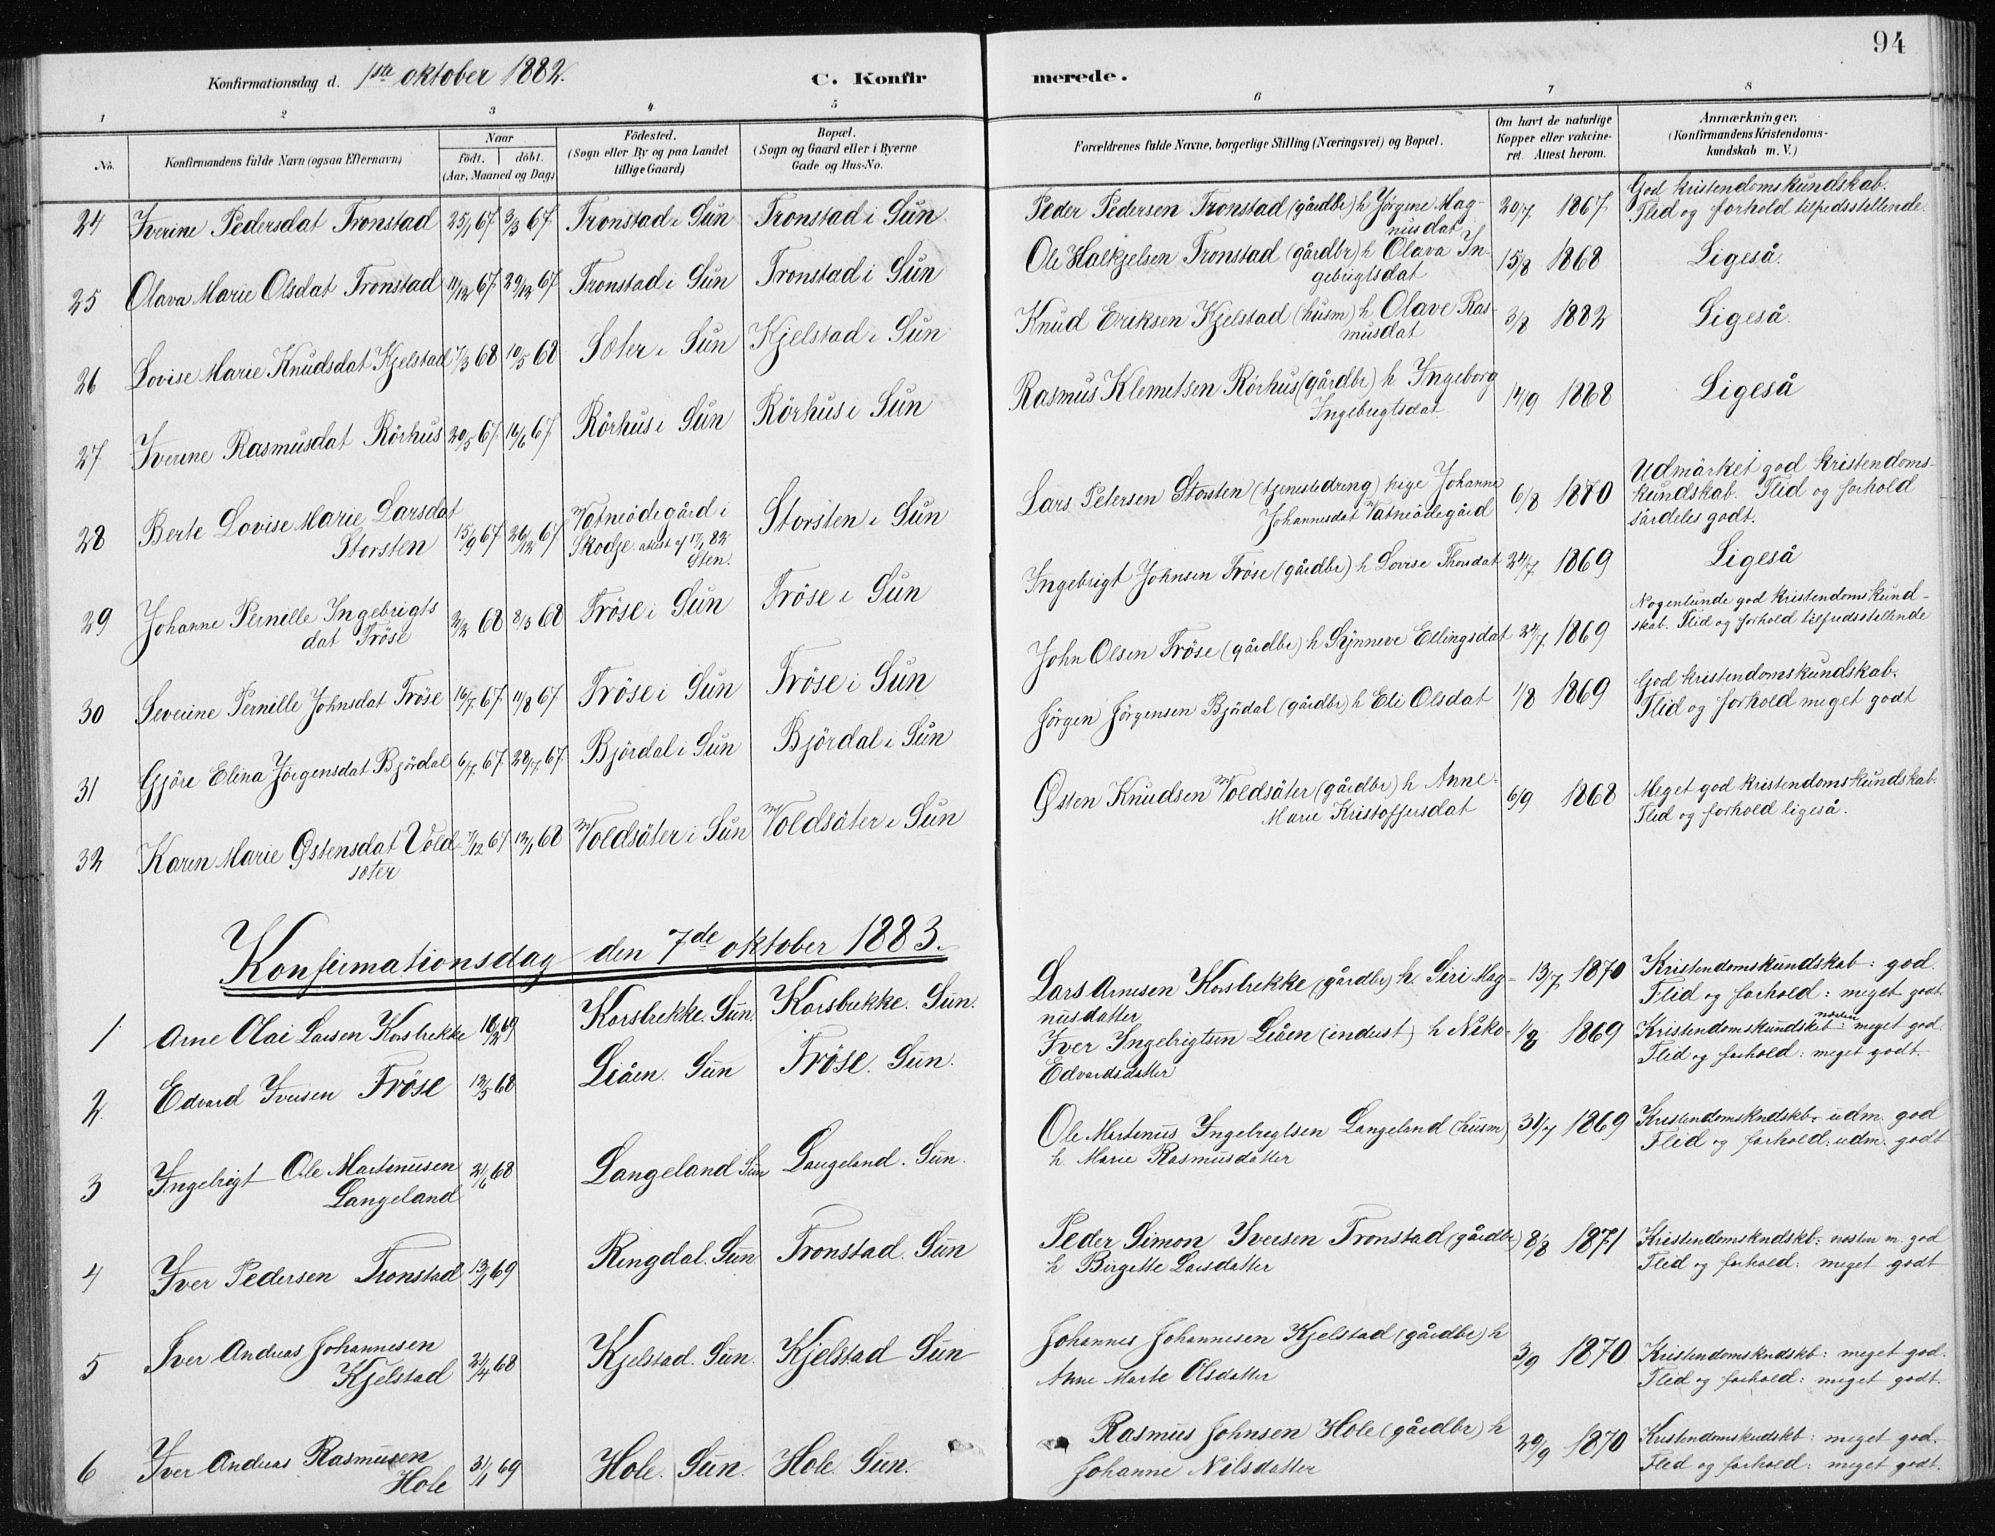 94
Konfirmationsdag d. 1ste oktober 1882.
C. Konfirmerede.
1 2 3 4 5 6 7 8
No.
Konfirmandens fulde Navn (ogsaa Efternavn)
Naar
födt. döbt.
(Aar, Maaned og Dag)
Födested.
(Sogn eller By og paa Landet
tillige Gaard)
Bopæl.
(Sogn og Gaard eller i Byerne
Gade og Hus-No.
Forældrenes fulde Navne, borgerlige Stilling (Næringsvei) og Bopæl.
Om havt de naturlige
Kopper eller vakcineret. Attest herom.
Anmærkninger.
(Konfirmandens Kristendomskundskab m. V.)
24 Iverine Pedersdat Tronstad 25/1 67 3/3 67 Tronstad i Sun Tronstad i Sun Peder Pedersen Tronstad (gårdbr) h Jörgine Mag- 20/7 1867 God kristendomskundskab.
nusdat Flid og forhold tilfredsstillende.
25 Olava Marie Olsdat Tronstad 11/12 67 29/12 67 Tronstad i Sun Tronstad i Sun Ole Halkjelsen Tronstad (gårdbr) h Olava In- 15/8 1868 Ligeså.
gebrigtsdat
26 Lovise Marie Knudsdat Kjelstad 7/3 68 10/5 68 Sæter i Sun Kjelstad i Sun Knud Eriksen Kjelstad (husm) h Olave Ras- 3/8 1882 Ligeså.
musdat
27 Iverine Rasmusdat Rörhus 20/5 67 16/6 67 Rörhus i Sun Rörhus i Sun Rasmus Klemetsen Rörhus (gårdbr) h Ingeborg 14/9 1868 Ligeså
Ingebrigtsdat
28 Berte Lovise Marie Larsdat 15/9 67 26/12 67 Vatneödegård i Storsten i Sun Lars Petersen Storsten (tjenestedreng) pige Johanne 6/8 1880 Udmärket god kristendoms-
Storsten Skodje attest af 17/1 82 Johannesdat Vatneödegård kundskab. Flid og forhold
Sten. särdeles godt.
29 Johanne Pernille Ingebrigts 2/2 68 8/3 68 Fröse i Sun Fröse i Sun Ingebrigt Johnsen Fröse (gårdbr) h Lovise Thorsdat 24/7 1869 Ligeså
dat Fröse
30 Severine Pernille Johnsdat Fröse 16/7 67 11/8 67 Fröse i Sun Fröse i Sun John Olsen Fröse (gårdbr) h Synneve Ellingsdat 24/7 1869 Nogenlunde god kristendomskund-
skab. Flid og forhold tilfredsstellende
31 Gjöre Elina Jörgensdat Björdal 6/7 67 28/7 67 Björdal i Sun Björdal i Sun Jörgen Jörgensen Björdal (gårdbr) h Eli Olsdat 1/8 1869 God kristendomskundskab.
Flid og forhold meget godt
32 Karen Marie Østensdat Vold 7/12 67 12/1 68 Voldsäter i Sun Voldsäter i Sun Østen Knudsen Voldsäter (gårdbr) h Anne 6/9 1868 Meget god kristendomskundskab.
sæter Marie Kristoffersdat Flid og forhold ligeså.
Konfirmationsdag den 7de oktober 1883.
1 Arne Olai Larsen Korsbrekke 18/2 69 Korsbrekke. Sun. Korsbrekke. Sun. Lars Arnesen Korsbrekke (gårdbr) h. Siri Mag- 13/7 1870 Kristendomskundskab: god.
nusdatter Flid og forhold: meget godt.
2. Edvard Iversen Fröse 12/5 68 Liåen. Sun Fröse. Sun. Iver Ingebrigtsen Liåen (inderst) h Niko- 1/8 1869 Kristendomskundskab: næsten meget god.
Edvardsdatter Flid og forhold: meget godt.
3 Ingebrigt Ole Martinusen 21/6 68 Langeland Sun Langeland. Sun. Ole Martinus Ingebrigtsen Langeland (husm) 31/7 1869 Kristendomskndskb. udm. god
Langeland h. Marie Rasmusdatter Flid og forhold: udm. godt
4 Iver Pedersen Tronstad 13/1 69 Ringdal. Sun Tronstad. Sun Peder Simon Iversen Tronstad (gårdbr) 8/8 1871 Kristendomskndskb: næsten m. god
h Birgitte Larsdatter Flid og forhold: meget godt
5 Iver Andreas Johannesen 21/4 68 Kjelstad. Sun. Kjelstad Sun Johannes Johannesen Kjelstad (gårdbr) h 3/9 1870 Kristendomskndskb: meget god.
Kjelstad Anne Marte Olsdatter Flid og forhold: meget godt.
6 Iver Andreas Rasmusen 31/1 69 Hole. Sun. Hole. Sun. Rasmus Johnsen Hole (gårdbr) h 29/9 1870 Kristendomskndskb: meget god.
Hole Johanne Nilsdatter Flid og forhold: meget godt.